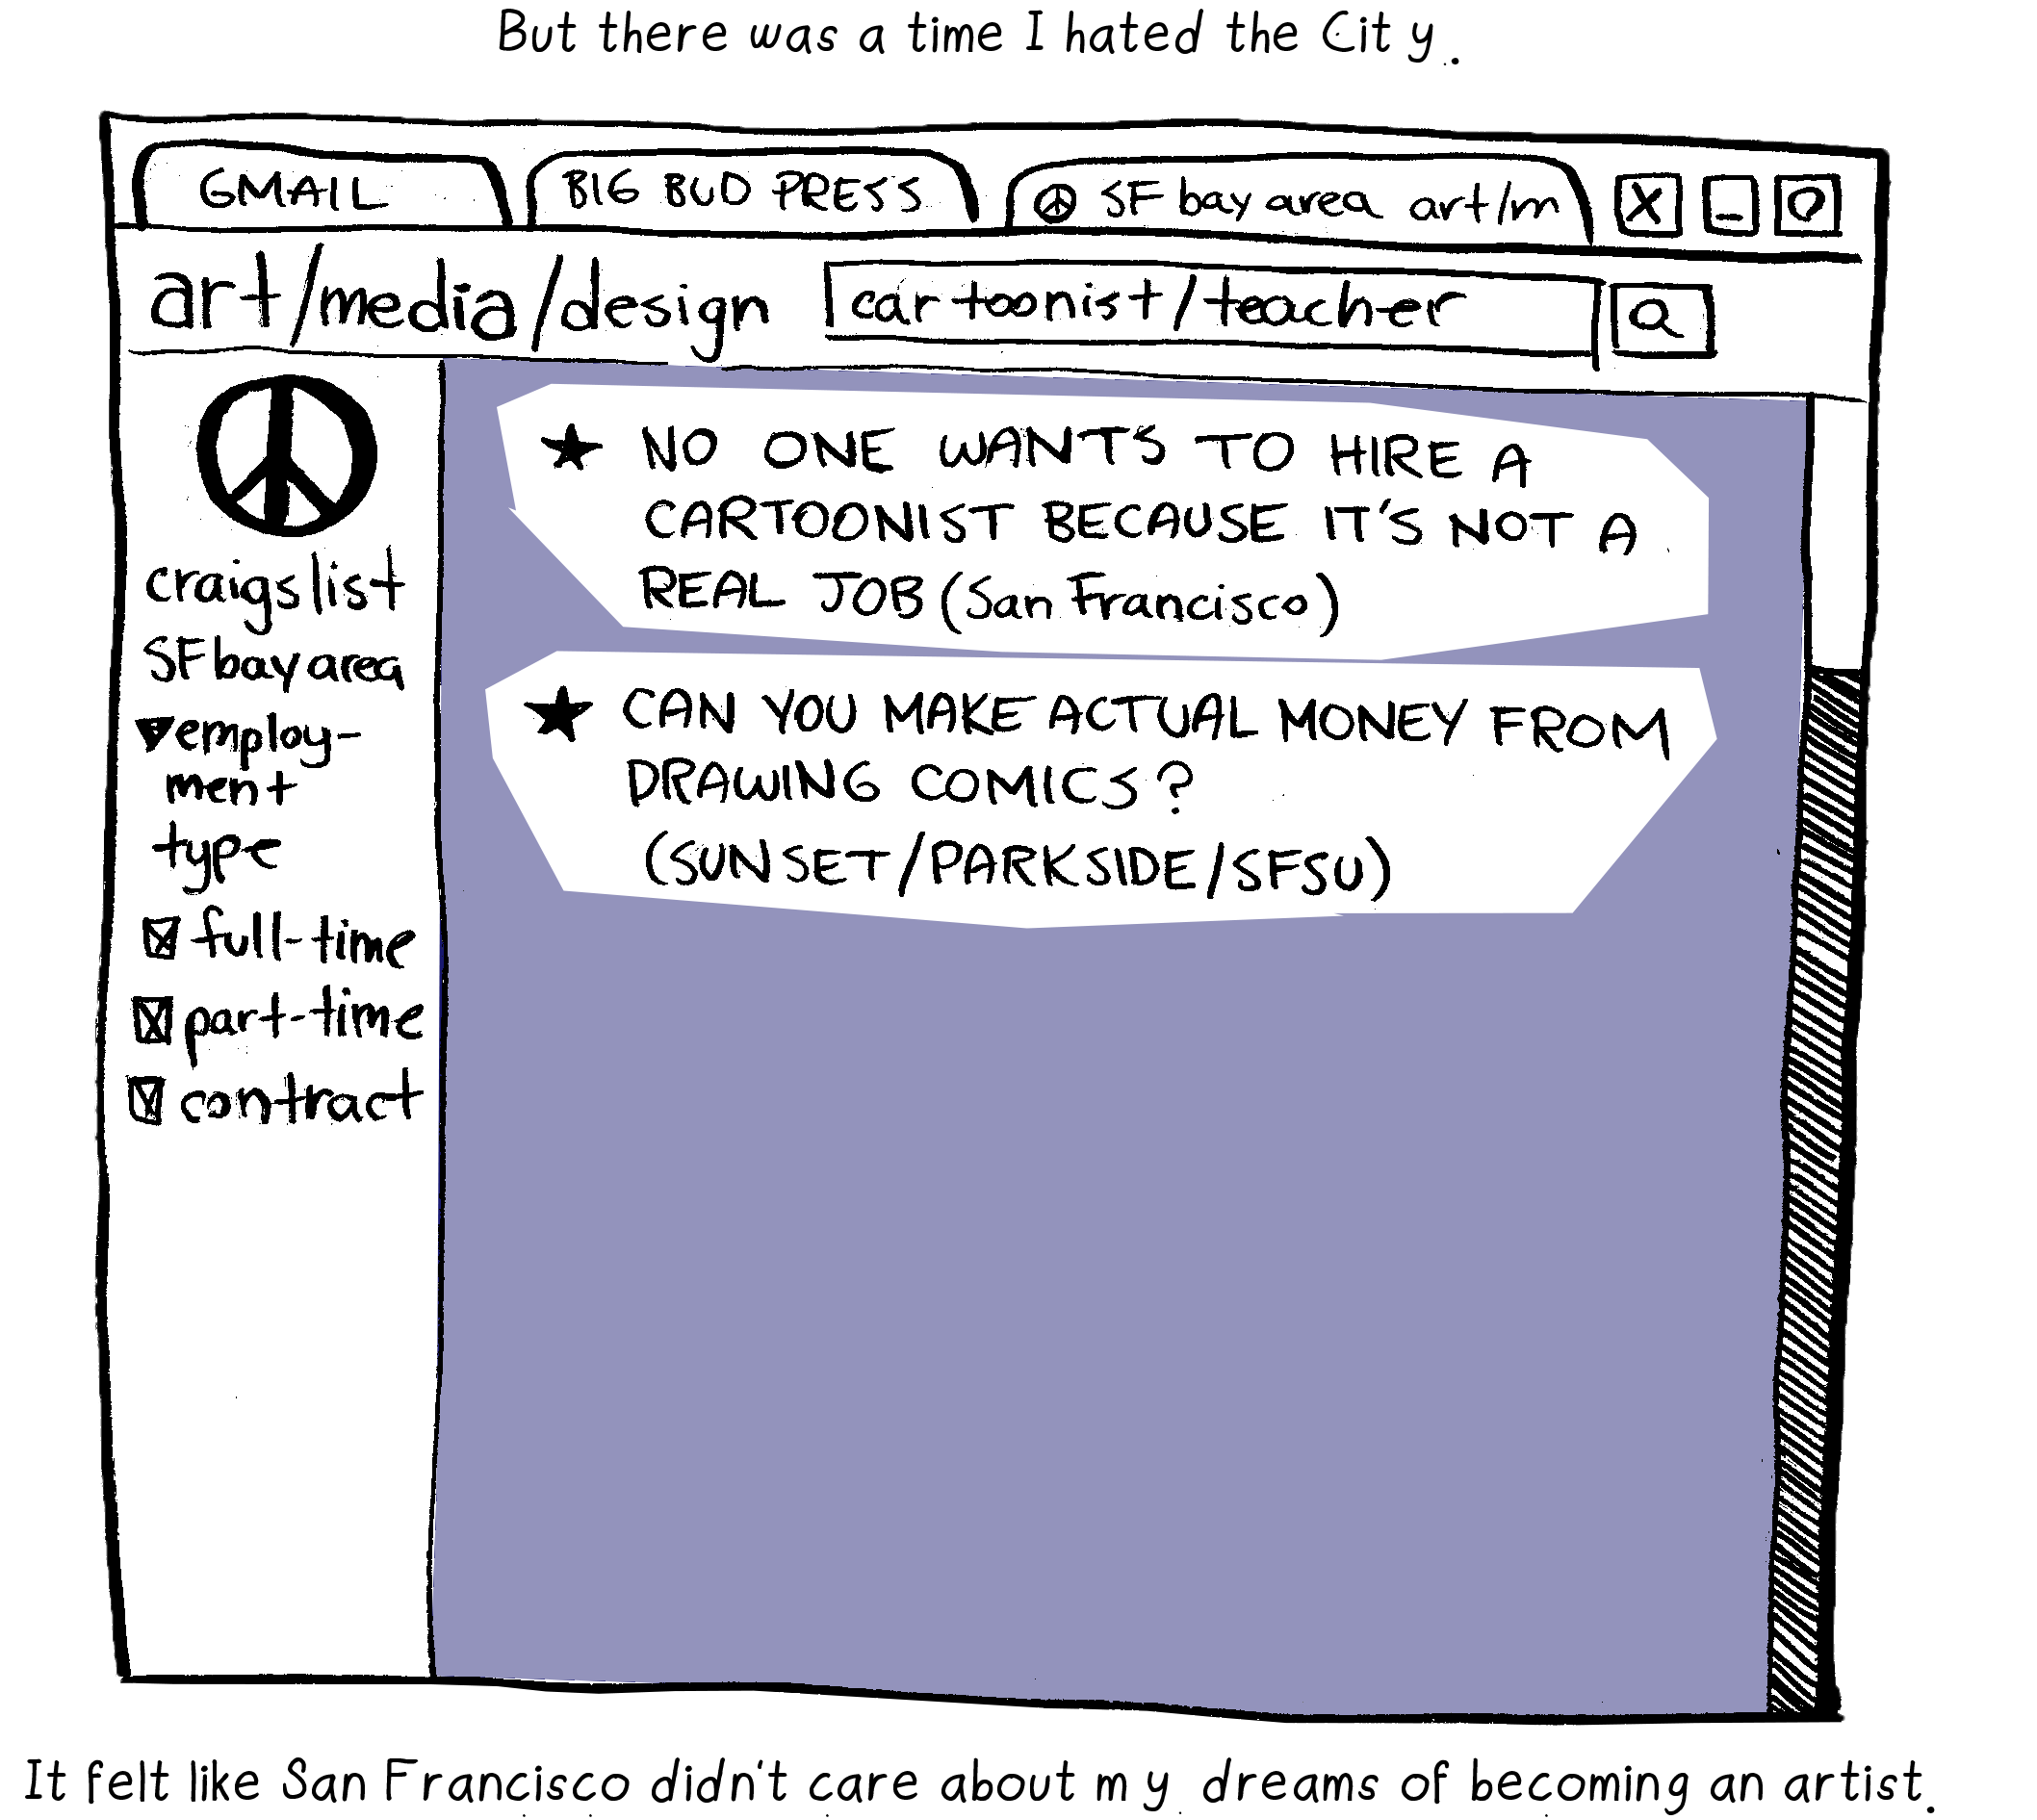 But there was a time I hated the City.
GMAIL
BIG BUD PRESS
SF bay area art/m
X
art/media/design
cartoonist/teacher
craigslist
SF bay area
employ-
ment
type
full-time
part-time
contract
★ NO ONE WANTS TO HIRE A
CARTOONIST BECAUSE IT'S NOT A
REAL JOB (San Francisco)
★ CAN YOU MAKE ACTUAL MONEY FROM
DRAWING COMICS?
(SUNSET/PARKSIDE/SFSU)
It felt like San Francisco didn't care about my dreams of becoming an artist.